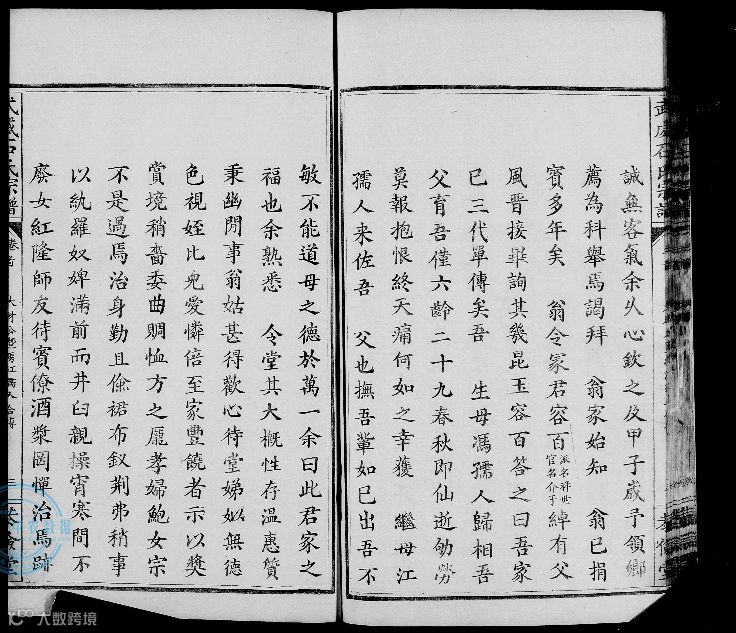 誠無客氣余久心欽之及甲子歲予領鄉
薦為科舉焉謁拜　翁家始知　翁已捐
賓多年矣　翁令冢君容百派名祥世官名介予綽有父
風晉接畢詢其幾昆玉容百答之曰吾家
已三代單傳矣吾　生母馮孺人歸相吾
父育吾僅六齡二十九春秋即仙逝劬勞
莫報抱恨終天痛何如之幸獲　繼母江
孺人来佐吾　父也撫吾輩如已出吾不
敏不能道母之德於萬一余曰此君家之
福也余熟悉　令堂其大概性存溫惠質
秉幽閒事翁姑甚得歡心待堂娣姒無德
色視姪比兒愛憐倍至家豐饒者示以獎
賞境稍嗇委曲賙恤方之龐孝婦鮑女宗
不是過焉治身勤且儉裙布釵荆弗稍事
以紈羅奴婢滿前而井臼親操宵寒間不
廢女紅隆師友待賓僚酒漿罔憚治焉跡
武威石氏宗譜
卷首
武威石氏宗譜
大数跨境